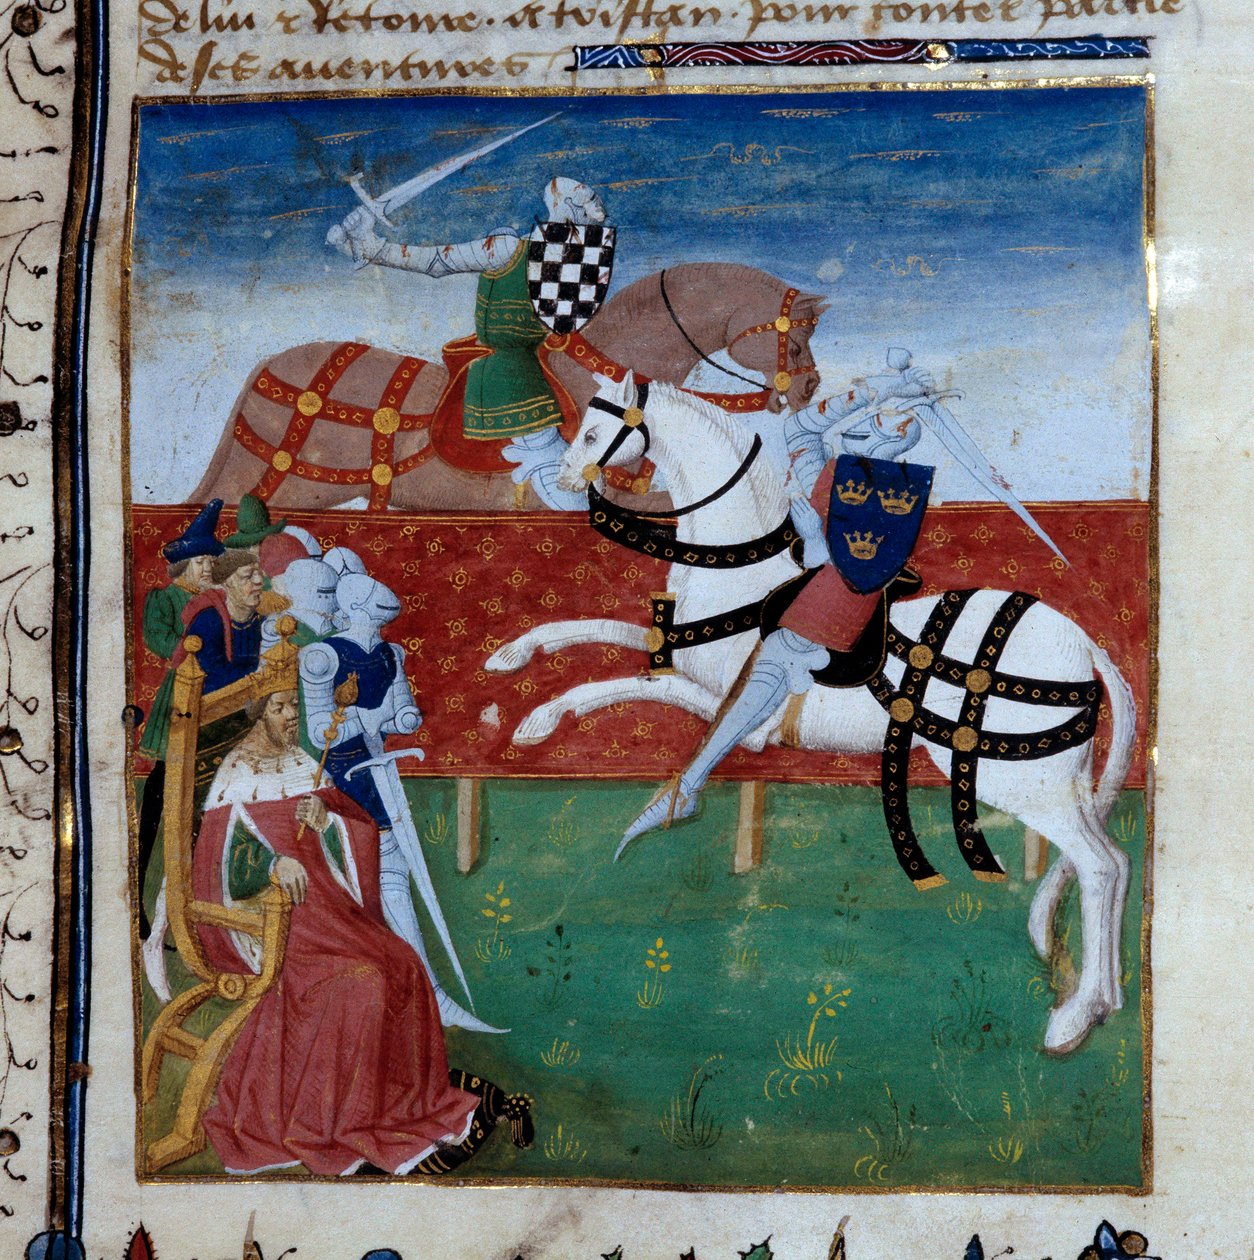 deluy & Retorne. a tristan. pour conter partie
de ses auentures